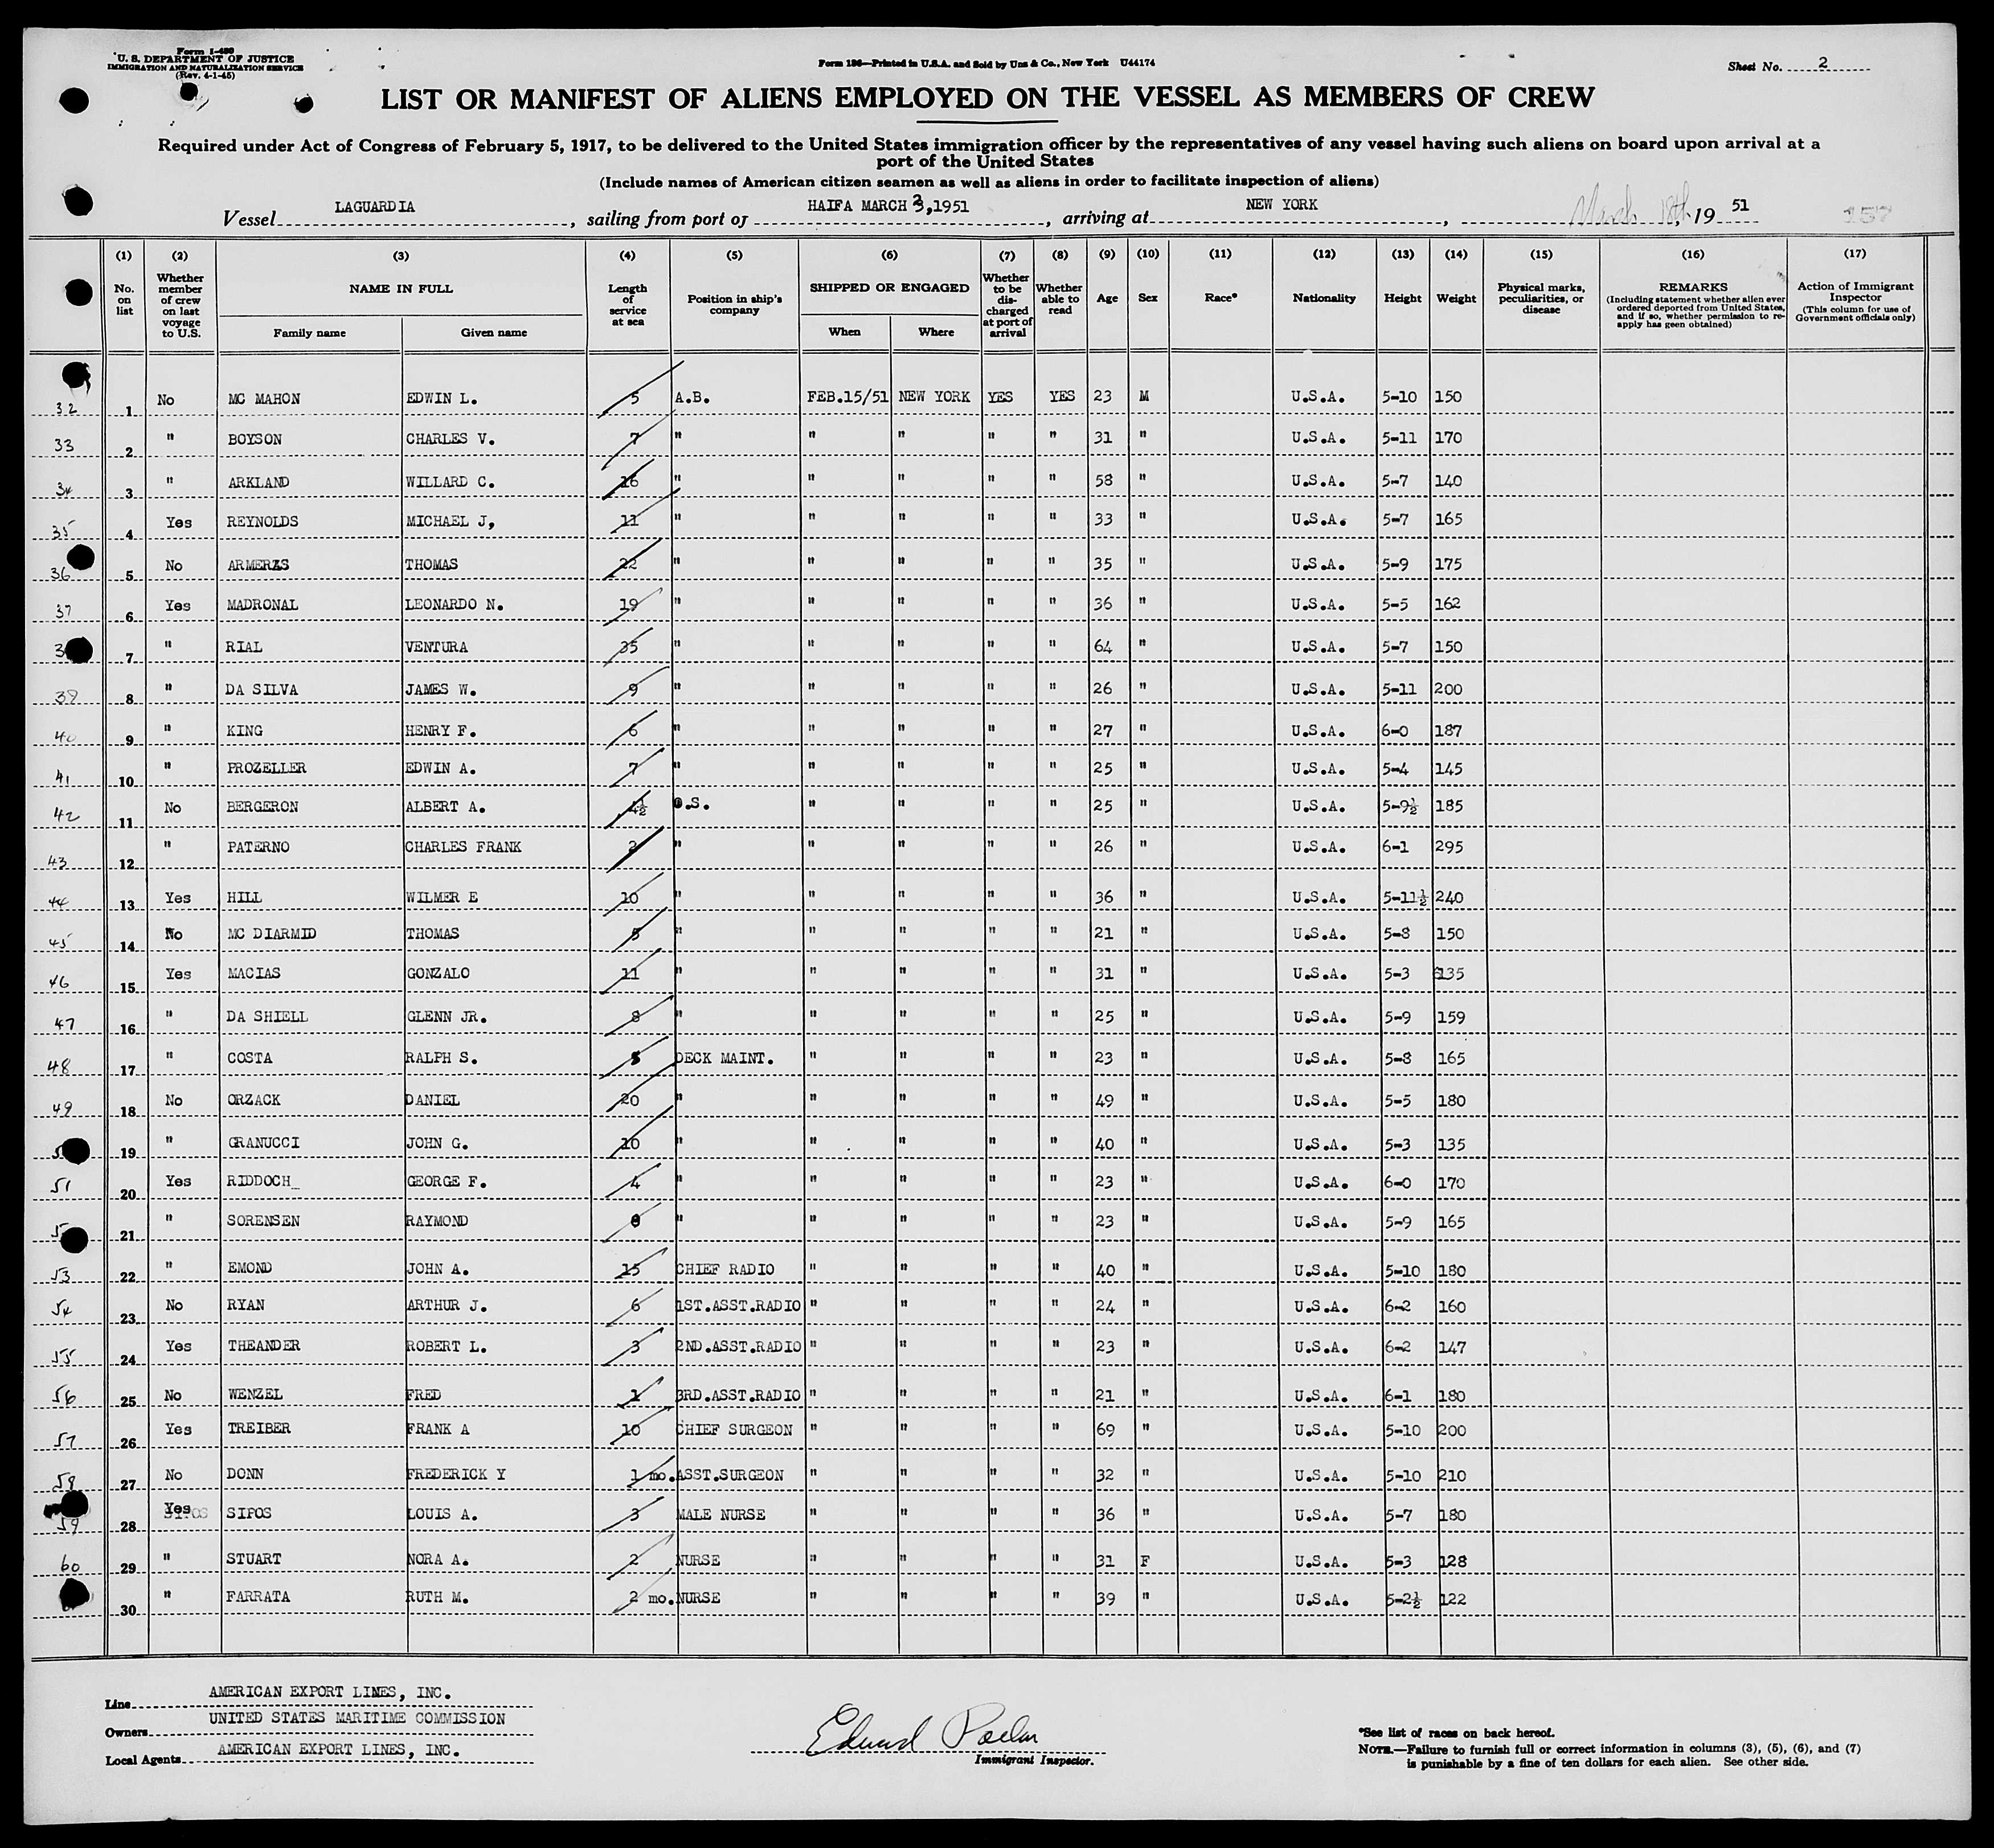 Form I-480
U. S. DEPARTMENT OF JUSTICE
IMMIGRATION AND NATURALIZATION SERVICE
(Rev. 4-1-45)
Form 186—Printed in U.S.A. and Sold by Unz & Co., New York U44174
Sheet No. 2
LIST OR MANIFEST OF ALIENS EMPLOYED ON THE VESSEL AS MEMBERS OF CREW
Required under Act of Congress of February 5, 1917, to be delivered to the United States immigration officer by the representatives of any vessel having such aliens on board upon arrival at a
port of the United States
(Include names of American citizen seamen as well as aliens in order to facilitate inspection of aliens)
Vessel LAGUARDIA, sailing from port of HAIFA MARCH 3,1951, arriving at NEW YORK, March 18th, 19 51 157
(1) (2) (3) (4) (5) (6) (7) (8) (9) (10) (11) (12) (13) (14) (15) (16) (17)
No. on list
Whether member of crew on last voyage to U.S.
NAME IN FULL
Family name Given name
Length of service at sea
Position in ship's company
SHIPPED OR ENGAGED
When Where
Whether to be discharged at port of arrival
Whether able to read
Age
Sex
Race*
Nationality
Height
Weight
Physical marks, peculiarities, or disease
REMARKS
(Including statement whether alien ever ordered deported from United States, and if so, whether permission to re-apply has geen obtained)
Action of Immigrant Inspector
(This column for use of Government officials only)
32 1 No MC MAHON EDWIN L. 5 A.B. FEB.15/51 NEW YORK YES YES 23 M U.S.A. 5-10 150
33 2 " BOYSON CHARLES V. 7 " " " " " 31 " U.S.A. 5-11 170
34 3 " ARKLAND WILLARD C. 16 " " " " " 58 " U.S.A. 5-7 140
35 4 Yes REYNOLDS MICHAEL J, 11 " " " " " 33 " U.S.A. 5-7 165
36 5 No THOMAS 22 " " " " " 35 " U.S.A. 5-9 175
37 6 Yes MADRONAL LEONARDO N. 19 " " " " " 36 " U.S.A. 5-5 162
3 7 " RIAL VENTURA 35 " " " " " 64 " U.S.A. 5-7 150
39 8 " DA SILVA JAMES W. 9 " " " " " 26 " U.S.A. 5-11 200
40 9 " KING HENRY F. 6 " " " " " 27 " U.S.A. 6-0 187
41 10 " PROZELLER EDWIN A. 7 " " " " " 25 " U.S.A. 5-4 145
42 11 No BERGERON ALBERT A. 4½ O.S. " " " " 25 " U.S.A. 5-9½ 185
43 12 " PATERNO CHARLES FRANK 2 " " " " " 26 " U.S.A. 6-1 295
44 13 Yes HILL WILMER E 10 " " " " " 36 " U.S.A. 5-11½ 240
45 14 No MC DIARMID THOMAS 5 " " " " " 21 " U.S.A. 5-8 150
46 15 Yes MACIAS GONZALO 11 " " " " " 31 " U.S.A. 5-3 135
47 16 " DA SHIELL GLENN JR. 8 " " " " " 25 " U.S.A. 5-9 159
48 17 " COSTA RALPH S. 5 DECK MAINT. " " " " 23 " U.S.A. 5-8 165
49 18 No ORZACK DANIEL 20 " " " " " 49 " U.S.A. 5-5 180
5 19 " GRANUCCI JOHN G. 10 " " " " " 40 " U.S.A. 5-3 135
51 20 Yes RIDDOCH GEORGE F. 4 " " " " " 23 " U.S.A. 6-0 170
5 21 " SORENSEN RAYMOND " " " " " 23 " U.S.A. 5-9 165
53 22 " EMOND JOHN A. 15 CHIEF RADIO " " " " 40 " U.S.A. 5-10 180
54 23 No RYAN ARTHUR J. 6 1ST.ASST.RADIO " " " " 24 " U.S.A. 6-2 160
55 24 Yes THEANDER ROBERT L. 3 2ND.ASST.RADIO " " " " 23 " U.S.A. 6-2 147
56 25 No WENZEL FRED 1 3RD.ASST.RADIO " " " " 21 " U.S.A. 6-1 180
57 26 Yes TREIBER FRANK A 10 CHIEF SURGEON " " " " 69 " U.S.A. 5-10 200
58 27 No DONN FREDERICK Y 1 mo. ASST.SURGEON " " " " 32 " U.S.A. 5-10 210
59 28 Yes SIPOS LOUIS A. 3 MALE NURSE " " " " 36 " U.S.A. 5-7 180
60 29 " STUART NORA A. 2 NURSE " " " " 31 F U.S.A. 5-3 128
30 " FARRATA RUTH M. 2 mo. NURSE " " " " 39 " U.S.A. 5-2½ 122
Line AMERICAN EXPORT LINES, INC.
Owners UNITED STATES MARITIME COMMISSION
Local Agents AMERICAN EXPORT LINES, INC.
Edward
Immigrant Inspector.
*See list of races on back hereof.
NOTE.—Failure to furnish full or correct information in columns (3), (5), (6), and (7)
is punishable by a fine of ten dollars for each alien. See other side.